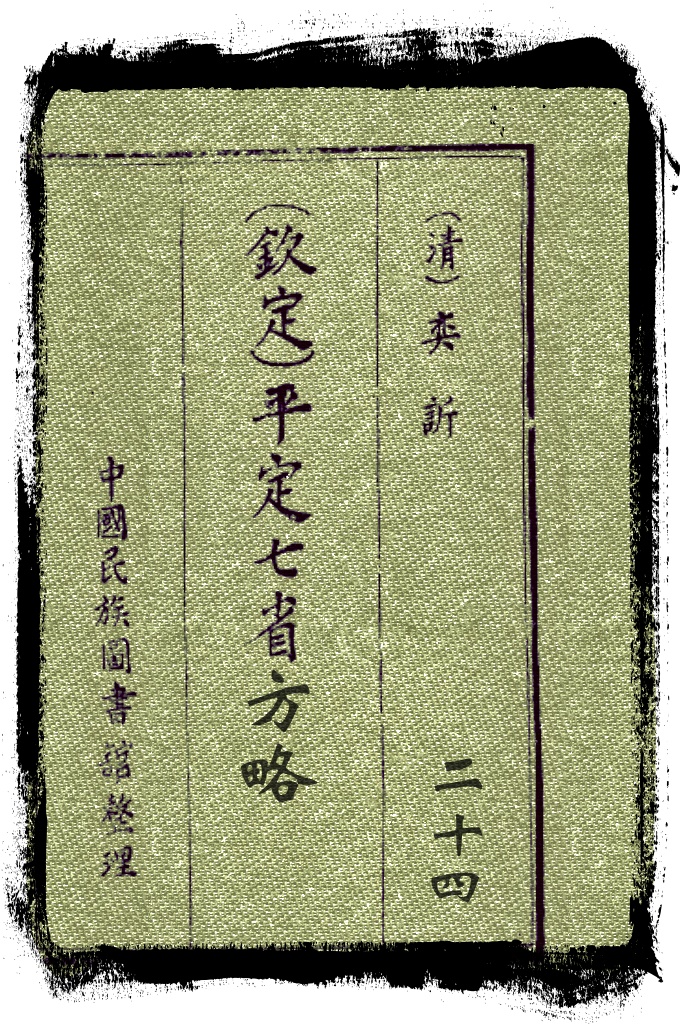 (清)奕訢
二十四
(欽定)平定七省方略
中國民族圖書館整理